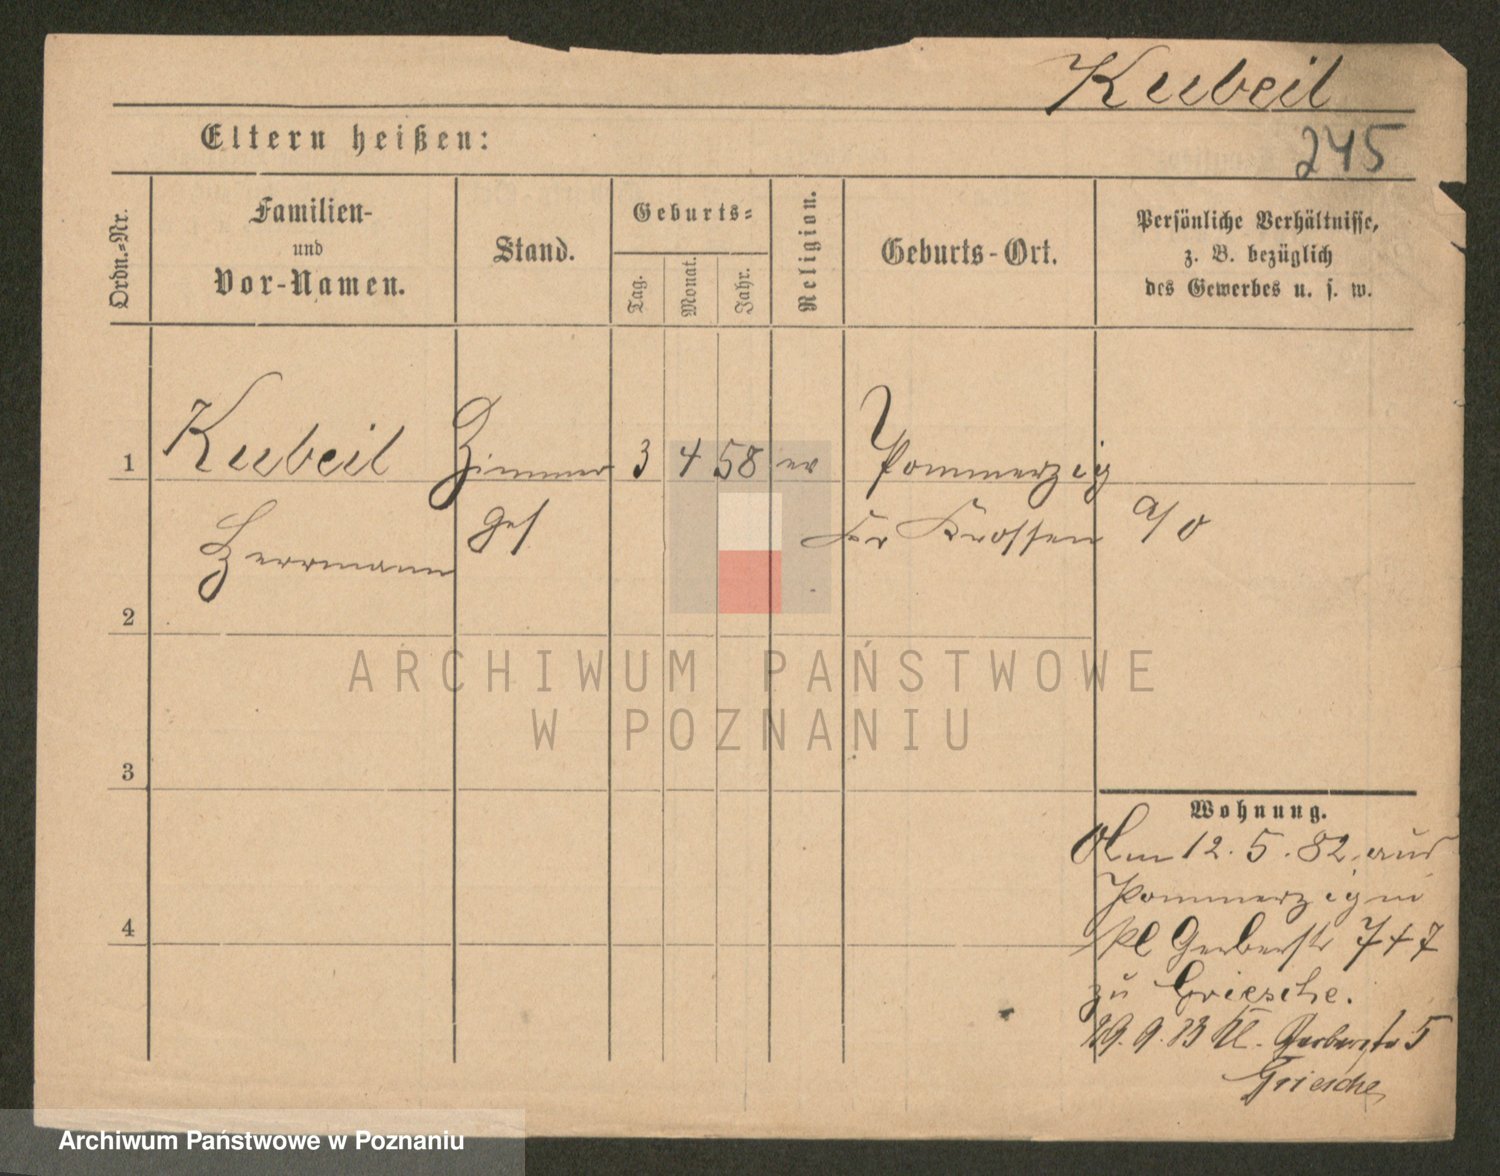 Kubeil
Eltern heißen:
245
Ordn.-Nr.
Familien-
und
Vor-Namen.
Stand.
Geburts-
Tag.
Monat.
Jahr.
Religion.
Geburts-Ort.
Persönliche Verhältnisse,
z. B. bezüglich
des Gewerbes u. s. w.
1 Kubeil Zimmer 3 4 58 ev Pommerzig
Herrmann ges Kr Krossen a/O
2
ARCHIWUM PAŃSTWOWE
W POZNANIU
3
Wohnung.
Am 12. 5. 82 aus
Pommerzig in
4
kl Gerberstr 7
zu Griesche.
29. 9. 83 Kl. Gerberstr 5
Griesche
Archiwum Państwowe w Poznaniu